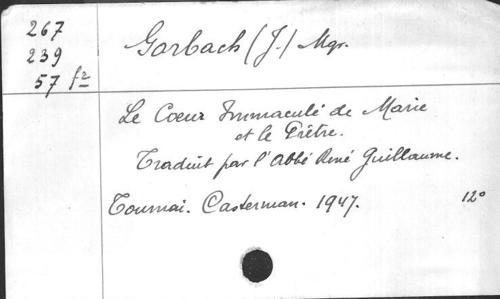 267
239
57 f2
Gorbach (J.) Mgr.
Le Coeur Immaculé de Marie
et le Prêtre.
Traduit par l'Abbé René Guillaume.
Tournai. Casterman. 1947. 12°